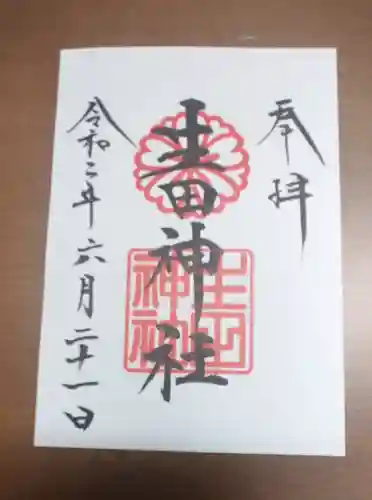 奉拝
生田神社
令和二年六月二十一日
生田
神社